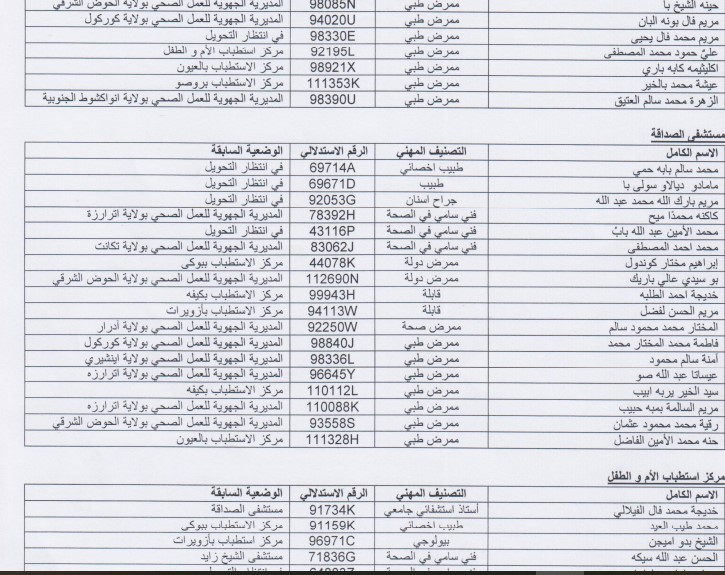 حينه الشيخ با ممرض طبي 98085N المديرية الجهوية للعمل الصحي بولاية الحوض الشرقي
مريم فال بونه البان ممرض طبي 94020U المديرية الجهوية للعمل الصحي بولاية كوركول
مريم محمد فال يحيى ممرض طبي 98330E في انتظار التحويل
عليّ حمود محمد المصطفى ممرض طبي 92195L مركز استطباب الأم و الطفل
اكليثيمه كابه باري ممرض طبي 98921X مركز الاستطباب بالعيون
عيشة محمد بالخير ممرض طبي 111353K مركز الاستطباب بروصو
الزهرة محمد سالم العتيق ممرض طبي 98390U المديرية الجهوية للعمل الصحي بولاية انواكشوط الجنوبية
مستشفى الصداقة
الاسم الكامل التصنيف المهني الرقم الاستدلالي الوضعية السابقة
محمد سالم بابه حمي طبيب اخصائي 69714A في انتظار التحويل
مامادو ديالاو سولى با طبيب 69671D في انتظار التحويل
مريم بارك الله محمد عبد الله جراح اسنان 92053G في انتظار التحويل
كاكنه محمذا ميح فني سامي في الصحة 78392H المديرية الجهوية للعمل الصحي بولاية اترارزة
محمد الأمين عبد الله بابُ فني سامي في الصحة 43116P في انتظار التحويل
محمد احمد المصطفى فني سامي في الصحة 83062J المديرية الجهوية للعمل الصحي بولاية تكانت
إبراهيم مختار كوندول ممرض دولة 44078K مركز الاستطباب ببوكى
بو سيدي عالي باريك ممرض دولة 112690N المديرية الجهوية للعمل الصحي بولاية الحوض الشرقي
خديجة احمد الطلبه قابلة 99943H مركز الاستطباب بكيفه
مريم الحسن لفضل قابلة 94113W مركز الاستطباب بأزويرات
المختار محمد محمود سالم ممرض صحة 92250W المديرية الجهوية للعمل الصحي بولاية أدرار
فاطمة محمد المختار محمد ممرض طبي 98840J المديرية الجهوية للعمل الصحي بولاية كوركول
آمنة سالم محمود ممرض طبي 98336L المديرية الجهوية للعمل الصحي بولاية اينشيري
عيساتا عبد الله صو ممرض طبي 96645Y المديرية الجهوية للعمل الصحي بولاية اترارزه
سيد الخير يربه ابيب ممرض طبي 110112L مركز الاستطباب بكيفه
مريم السالمة بمبه حبيب ممرض طبي 110088K المديرية الجهوية للعمل الصحي بولاية اترارزه
رقية محمد محمود عثمان ممرض طبي 93558S المديرية الجهوية للعمل الصحي بولاية الحوض الشرقي
حنه محمد الأمين الفاضل ممرض طبي 111328H مركز الاستطباب بالعيون
مركز استطباب الأم و الطفل
الاسم الكامل التصنيف المهني الرقم الاستدلالي الوضعية السابقة
خديجة محمد فال الفيلالي أستاذ استشفائي جامعي 91734K مستشفى الصداقة
محمد طيب العيد طبيب اخصائي 91159K مركز الاستطباب ببوكى
الشيخ بدو اميجن بيولوجي 96971C مركز استطباب بأزويرات
الحسن عبد الله سيكه فني سامي في الصحة 71836G مستشفى الشيخ زايد